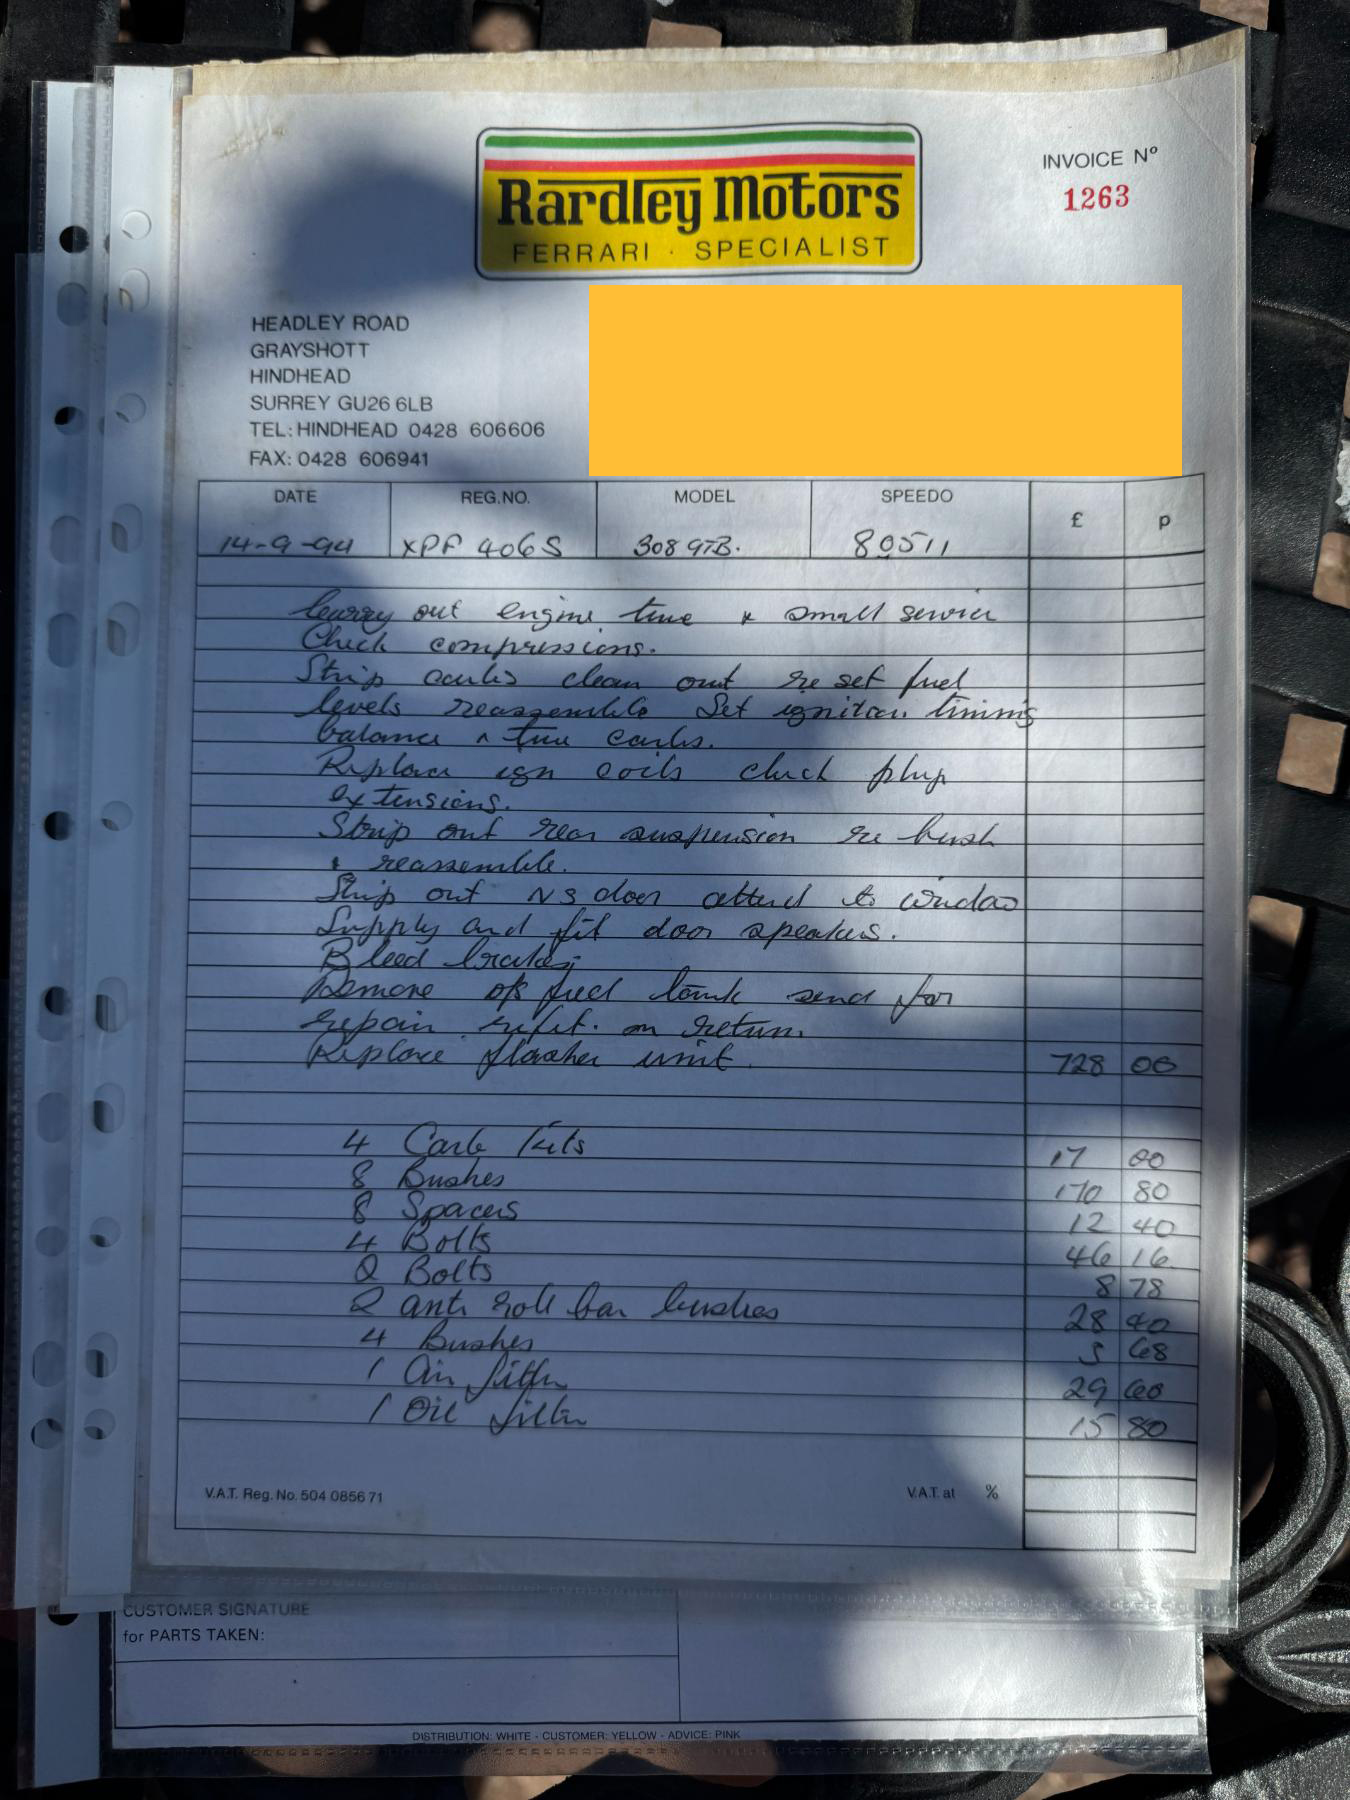 Rardley Motors
FERRARI · SPECIALIST
INVOICE Nº
1263
HEADLEY ROAD
GRAYSHOTT
HINDHEAD
SURREY GU26 6LB
TEL: HINDHEAD 0428 606606
FAX: 0428 606941
DATE REG.NO. MODEL SPEEDO £ p
14-9-94 XPF 406S 308 GTB. 80511
Carry out engine tune & small service
Check compressions.
Strip carbs clean out re set fuel
levels reassemble Set igniton timing
balance & tune carbs.
Replace ign coils check plug
extensions.
Strip out rear suspension re bush
& reassemble.
Strip out NS door attend to window
Supply and fit door speakers.
Bleed brakes;
Remove o/s fuel tank send for
repair refit. on return.
Replace flasher unit. 728 00
4 Carb Kits 17 00
8 Bushes 170 80
8 Spacers 12 40
4 Bolts 46 16
2 Bolts 8 78
2 anti roll bar bushes 28 40
4 Bushes 68
1 Air filter 29 60
1 Oil filter 15 80
V.A.T. Reg. No. 504 0856 71 V.A.T. at %
CUSTOMER SIGNATURE
for PARTS TAKEN:
DISTRIBUTION: WHITE - CUSTOMER: YELLOW - ADVICE: PINK